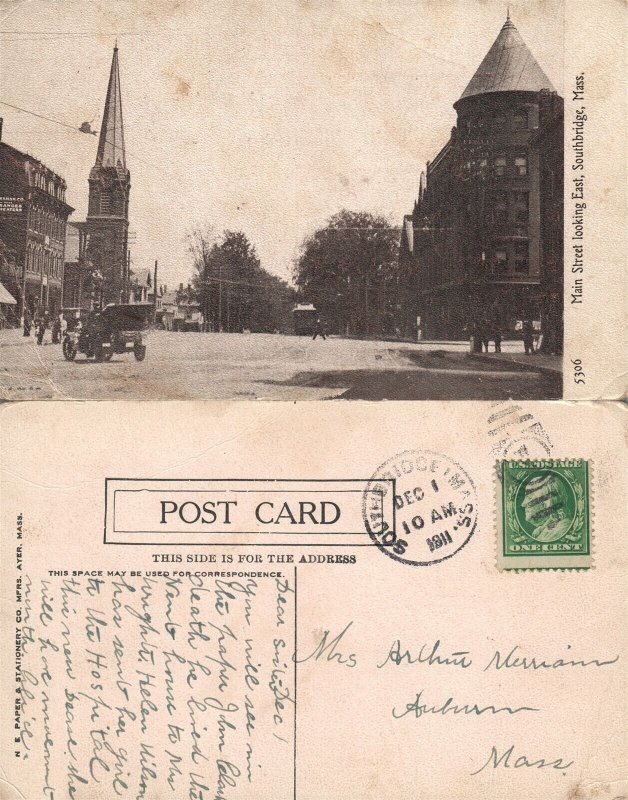 Main Street looking East, Southbridge, Mass.
5306
POST CARD
THIS SIDE IS FOR THE ADDRESS
THIS SPACE MAY BE USED FOR CORRESPONDENCE.
N E PAPER & STATIONERY CO. MFRS. AYER, MASS.
SOUTHBRIDGE MASS.
DEC 1
10 AM
1911
U.S. POSTAGE
ONE CENT
Dec 1
Dear
you will see in
the paper John Clark
death he lived the
house to Mrs
Wright. Helen Wilson
has sent her girl
to the Hospital
this
will
Mrs Arthur Merriam
Auburn
Mass